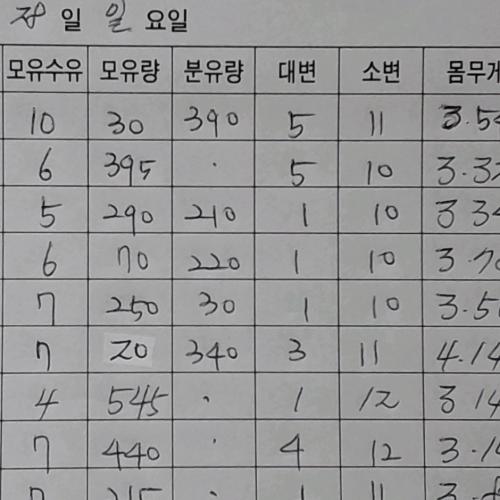 일 일 요일
모유수유 모유량 분유량 대변 소변 몸무게
10 30 390 5 11 3.5
6 395 · 5 10 3.3
5 290 210 1 10 3 34
6 70 220 1 10 3.70
7 250 30 1 10 3.5
7 20 340 3 11 4.14
4 545 · 1 12 3 14
7 440 · 4 12 3.1